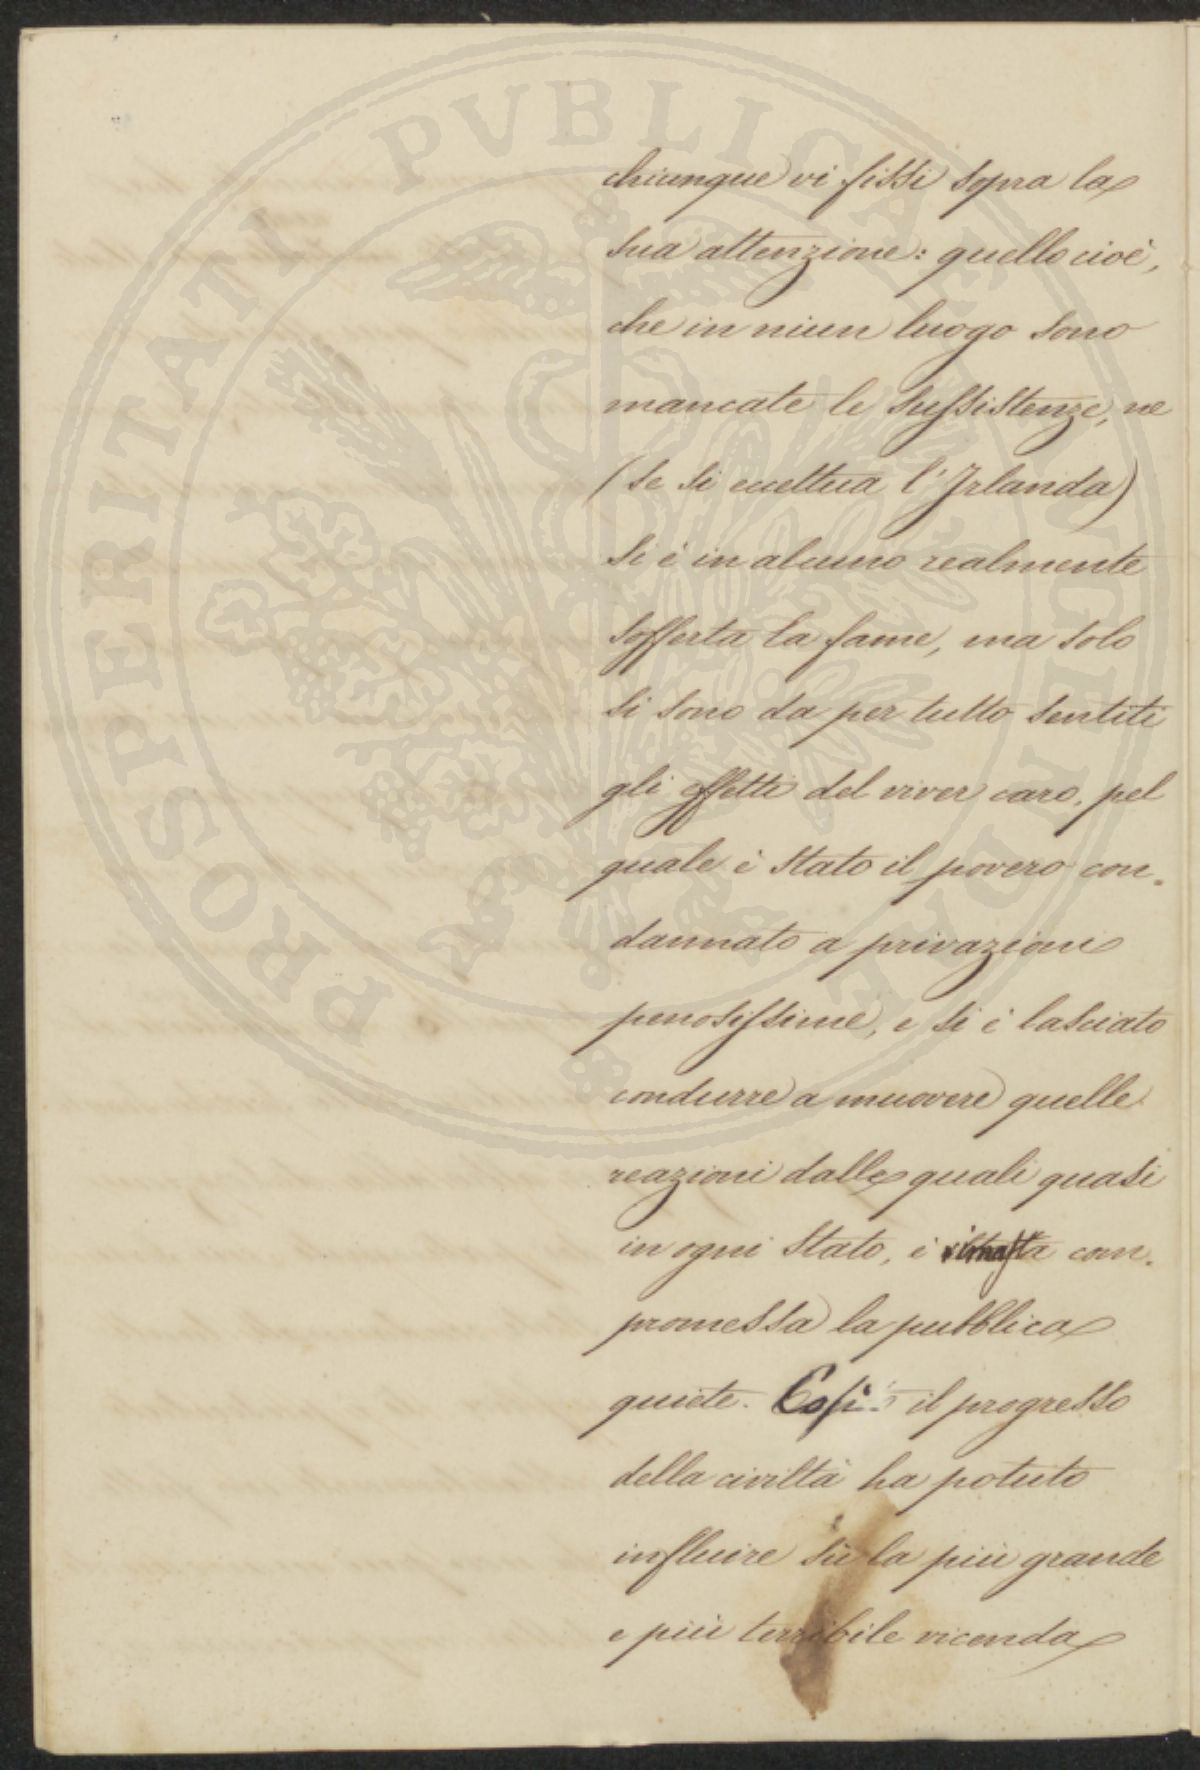 PROSPERITATI PVBLICAE AVGENDAE
chiunque vi fissi sopra la
sua attenzione: quello cioè,
che in niun luogo sono
mancate le sussistenze, ne
(se si eccettua l'Irlanda)
si è in alcuno realmente
sofferta la fame, ma solo
si sono da per tutto sentiti
gli effetti del viver caro, pel
quale è stato il povero con=
dannato a privazioni
penosissime, e si è lasciato
condurre a muovere quelle
reazioni dalle quali quasi
in ogni Stato, è rimasta com=
promessa la pubblica
quiete. Così il progresso
della civiltà ha potuto
influire sù la più grande
e più terribile vicenda